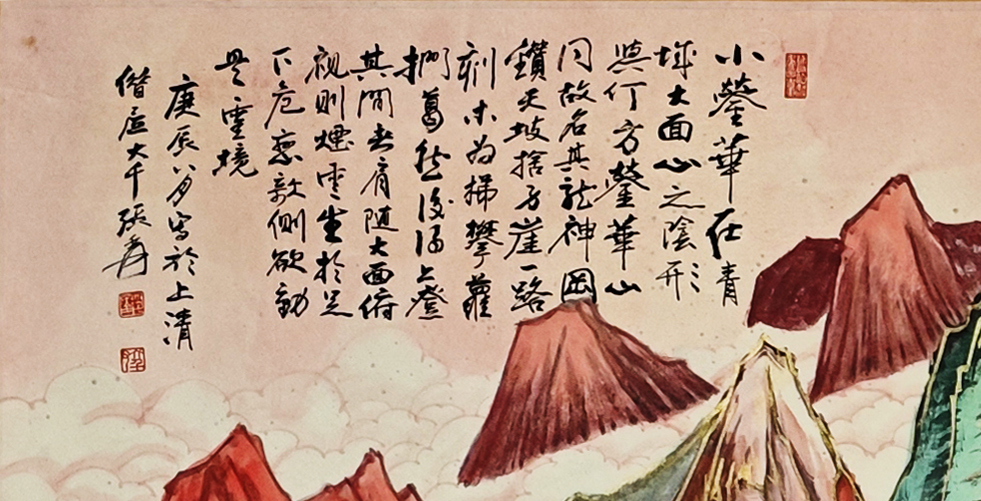 小鎣華在青
城大面山之陰形
與什方鎣華山
同故名其龍神岡
鑽天坡捨身崖一路
刻木為梯攀蘿
捫葛然後得上登
其間者肩随大面俯
視則煙雲生於足
下危巒欹側欲動
靈境
庚辰八月寫於上清
借居大千張爰